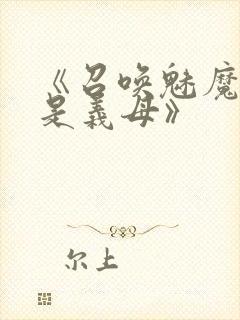 《召唤魅魔
是义母》
尔上